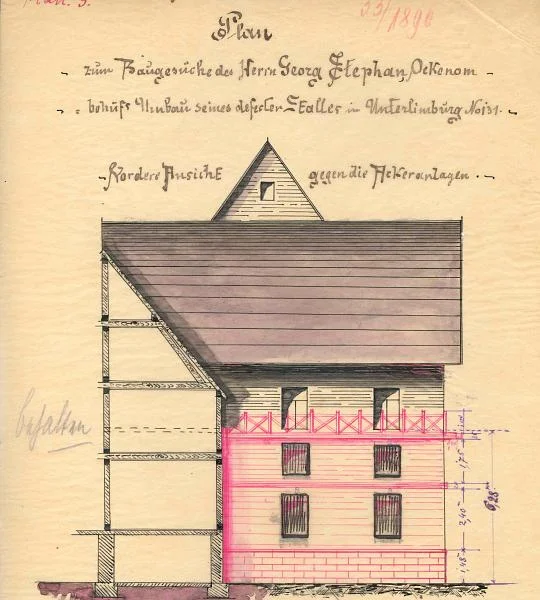 33/1896
Plan
zum Baugesuche des Herrn Georg Stephan, Oekonom
behufs Umbau seines defecten Stalles in Unterlimburg No 131.
Vordere Ansicht gegen die Ackeranlagen.
behalten
1,75
2,40
6,28
1,48